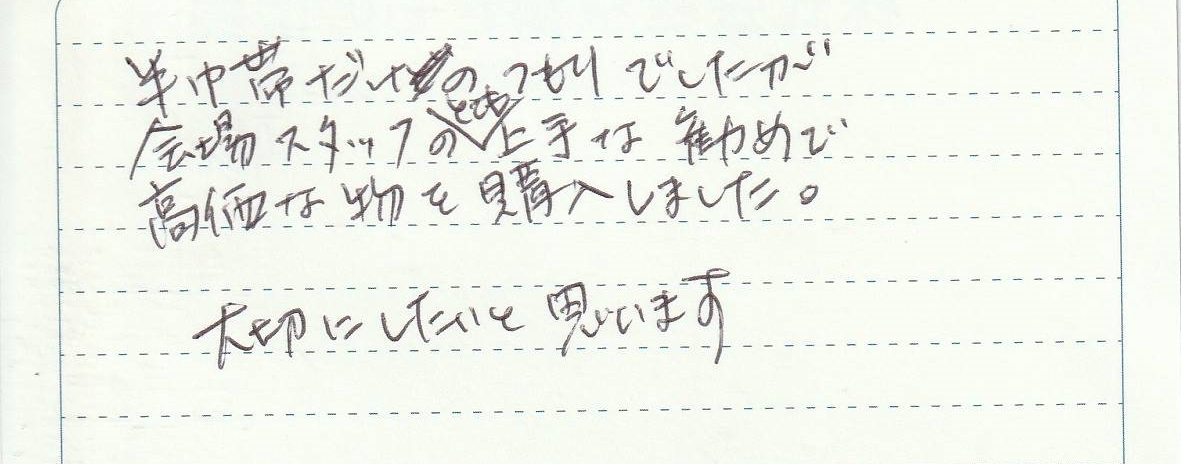 半巾帯だけのつもりでしたが
会場スタッフのとても上手な勧めで
高価な物を購入しました。
大切にしたいと思います